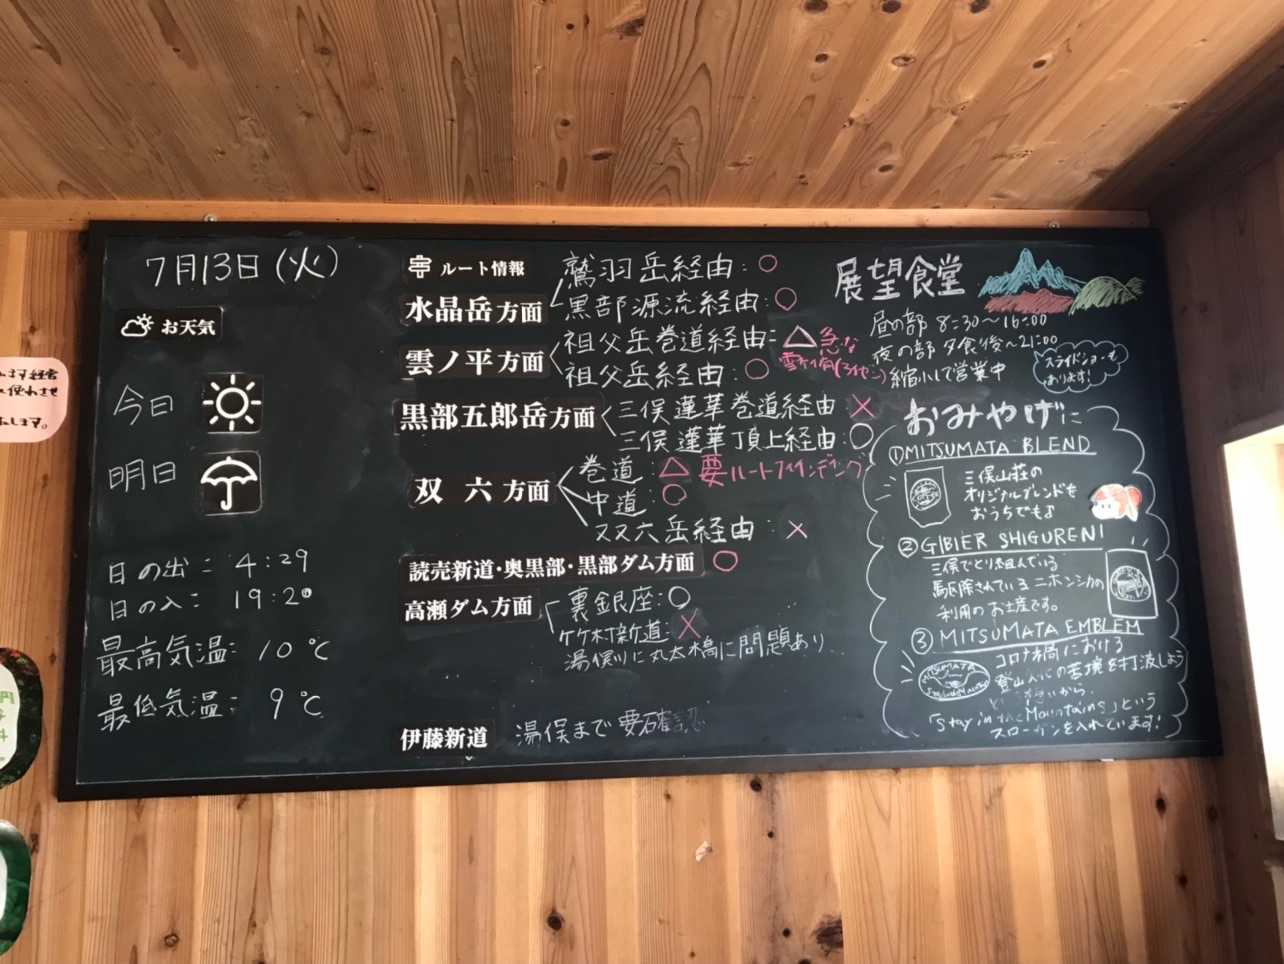 7月13日(火)
お天気
今日
明日
日の出: 4:29
日の入: 19:20
最高気温: 10℃
最低気温: 9℃
ルート情報
水晶岳方面
鷲羽岳経由: ○
黒部源流経由: ○
雲ノ平方面
祖父岳巻道経由: △ 急な
祖父岳経由: ○
黒部五郎岳方面
三俣蓮華巻道経由 ×
三俣蓮華頂上経由: ○
双六方面
巻道: △ 要ルートファインディング
中道: ○
双六岳経由: ×
読売新道・奥黒部・黒部ダム方面 ○
高瀬ダム方面
裏銀座: ○
竹村新道: ×
湯俣川に丸太橋に問題あり
伊藤新道 湯俣まで 要確認
展望食堂
昼の部 8:30〜16:00
夜の部 夕食後〜21:00
縮小して営業中
スライドショーも
あります!
おみやげに
①MITSUMATA BLEND
三俣山荘の
オリジナルブレンドを
おうちでも♪
②GIBIER SHIGURENI
三俣でとり組んでいる
駆除されているニホンジカの
利用のお土産です。
③MITSUMATA EMBLEM
MITSUMATA
コロナ禍における
登山人の苦境を打破しよう
「Stay in the Mountains」という
スローガンを入れています!